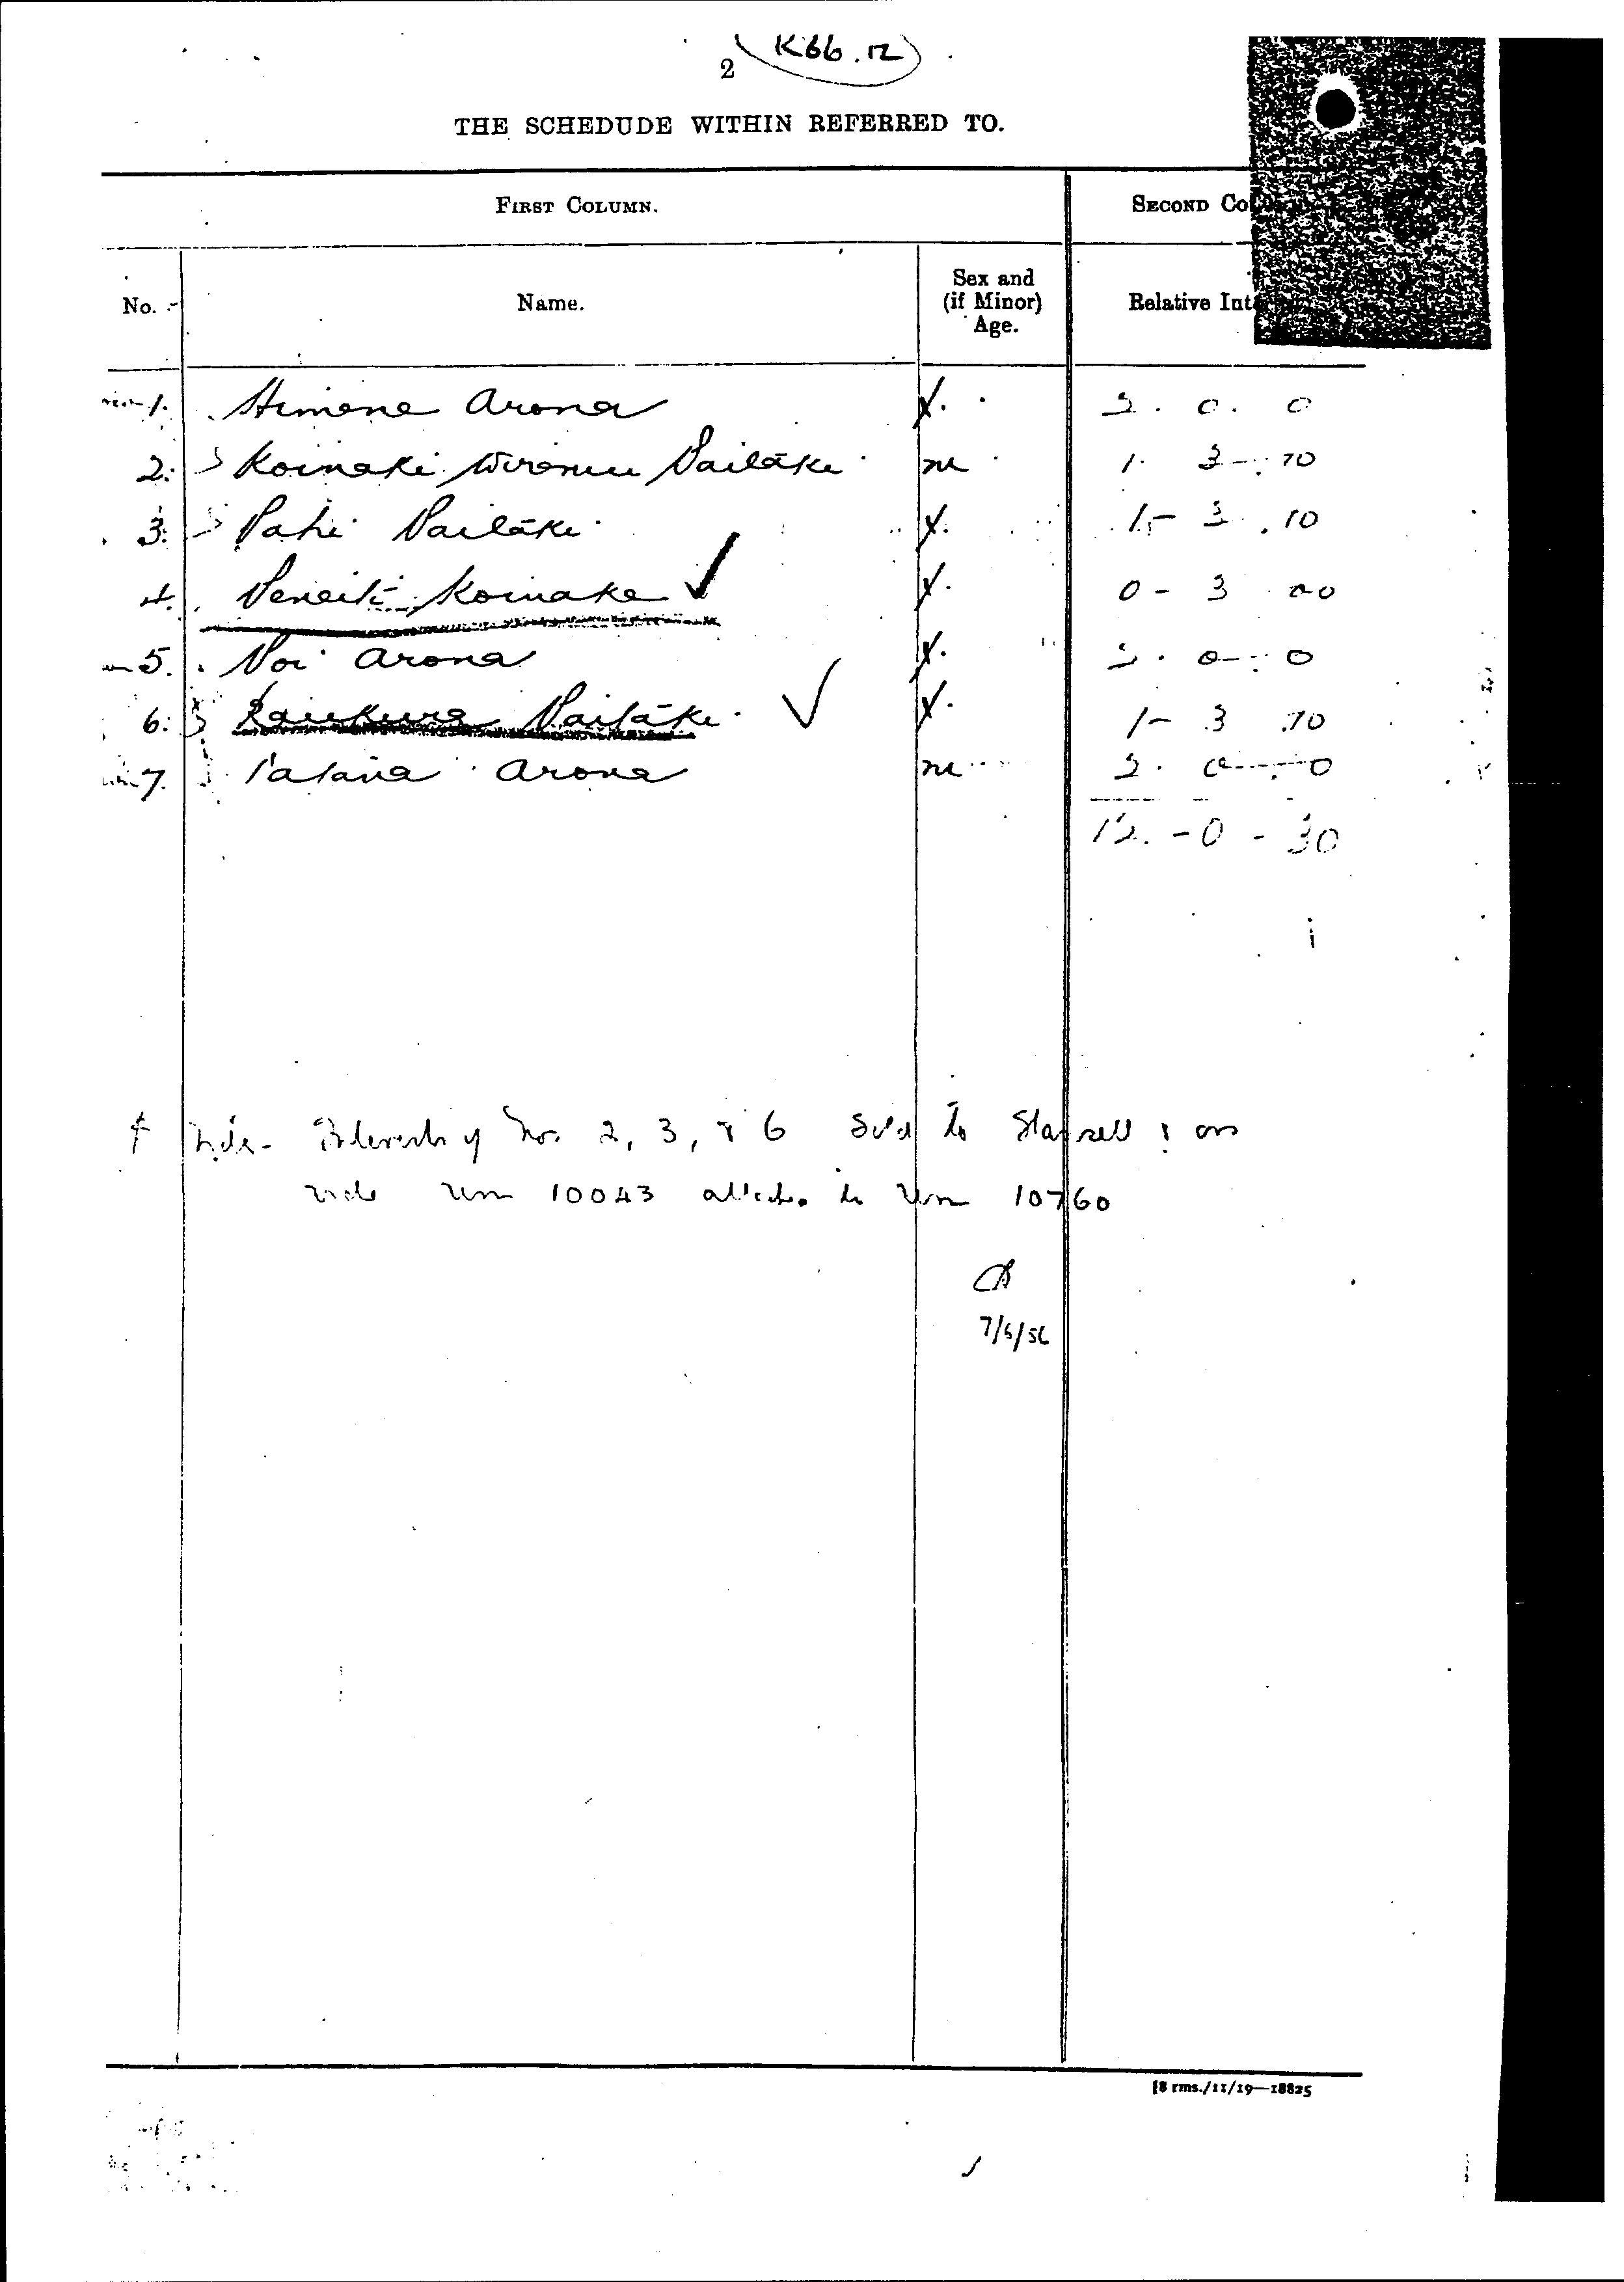 K66.12
2
THE SCHEDUDE WITHIN REFERRED TO.
FIRST COLUMN. SECOND
No. Name. Sex and (if Minor) Age. Relative
1. Himene Arona f. 2. 0. 0
2. Koinaki Wiremu Paitaki m 1. 3. 10
3. Pahi Paitaki f. 1 - 3. 10
4. Peneiti Koinake ✓ f. 0 - 3 00
5. Poi Arona f. 2. 0 - 0
6. Raukura Paitaki ✓ f. 1 - 3 .10
7. Tatana Arona m 2. 0 - 0
12. - 0 - 30
Interests of Nos 2, 3, & 6 sold to
10043 to 10760
7/6/56
[8 rms./11/19—18825